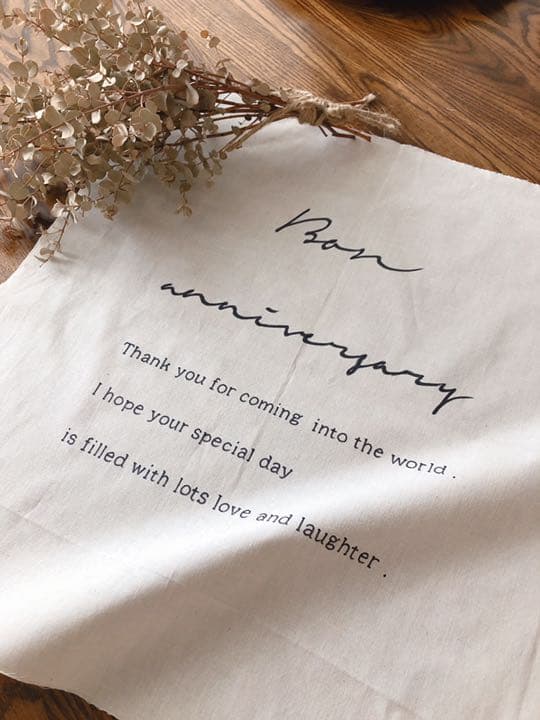 Bon
anniversary
Thank you for coming into the world.
I hope your special day
is filled with lots love and laughter.